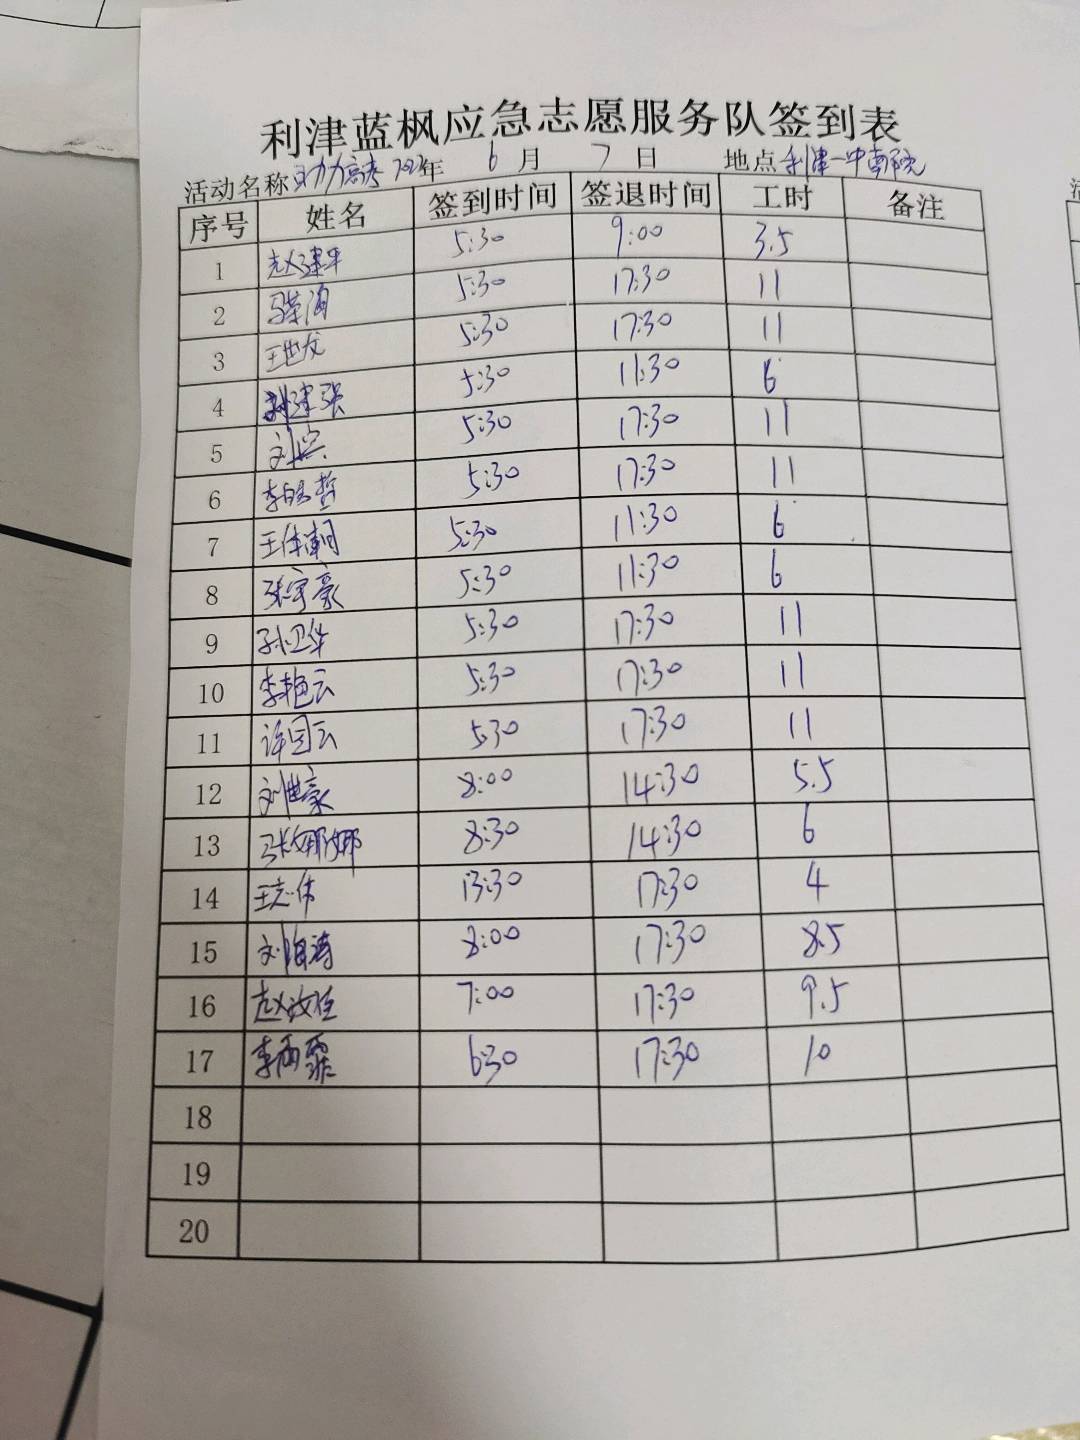 利津蓝枫应急志愿服务队签到表
活动名称 助力高考 年 6 月 7 日 地点 利津一中南院
序号 姓名 签到时间 签退时间 工时 备注
1 赵建平 5:30 9:00 3.5
2 5:30 17:30 11
3 王世龙 5:30 17:30 11
4 5:30 11:30 6
5 5:30 17:30 11
6 5:30 17:30 11
7 5:30 11:30 6
8 张宇豪 5:30 11:30 6
9 孙卫华 5:30 17:30 11
10 李艳云 5:30 17:30 11
11 许国云 5:30 17:30 11
12 刘世豪 8:00 14:30 5.5
13 张娜娜 8:30 14:30 6
14 王志伟 13:30 17:30 4
15 刘海涛 8:00 17:30 8.5
16 7:00 17:30 9.5
17 李雨霏 6:30 17:30 10
18
19
20